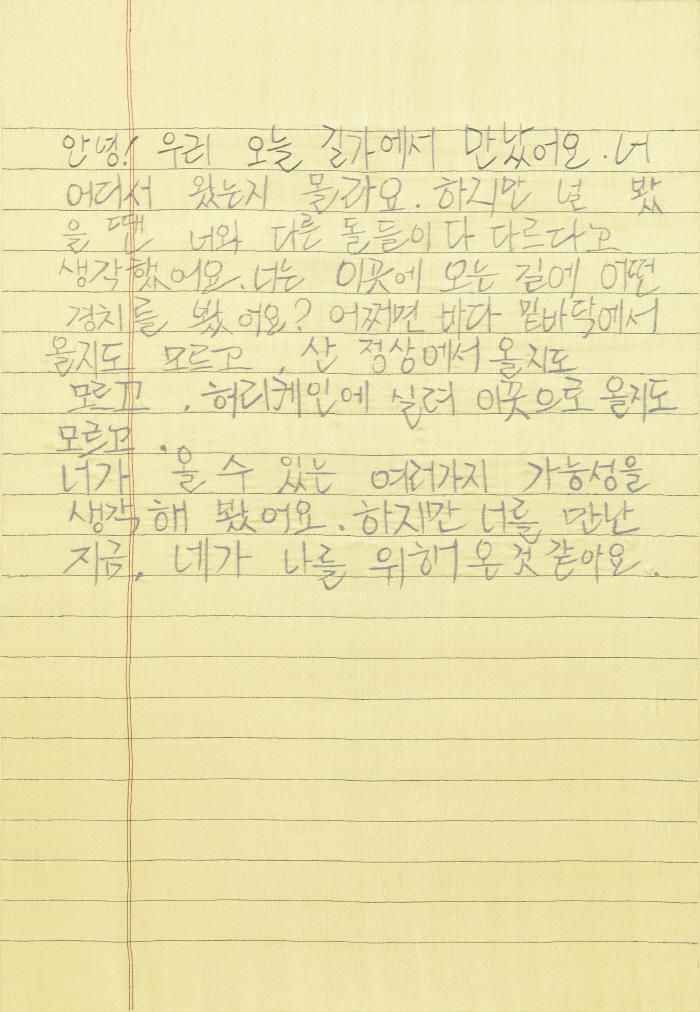 안녕! 우리 오늘 길가에서 만났어요. 너
어디서 왔는지 몰라요. 하지만 널 봤
을 땐 너와 다른 돌들이 다 다르다고
생각했어요. 너는 이곳에 오는 길에 어떤
경치를 봤어요? 어쩌면 바다 밑바닥에서
올지도 모르고, 산 정상에서 올지도
모르고, 허리케인에 실려 이곳으로 올지도
모르고.
너가 올 수 있는 여러가지 가능성을
생각해 봤어요. 하지만 너를 만난
지금, 네가 나를 위해 온 것 같아요.